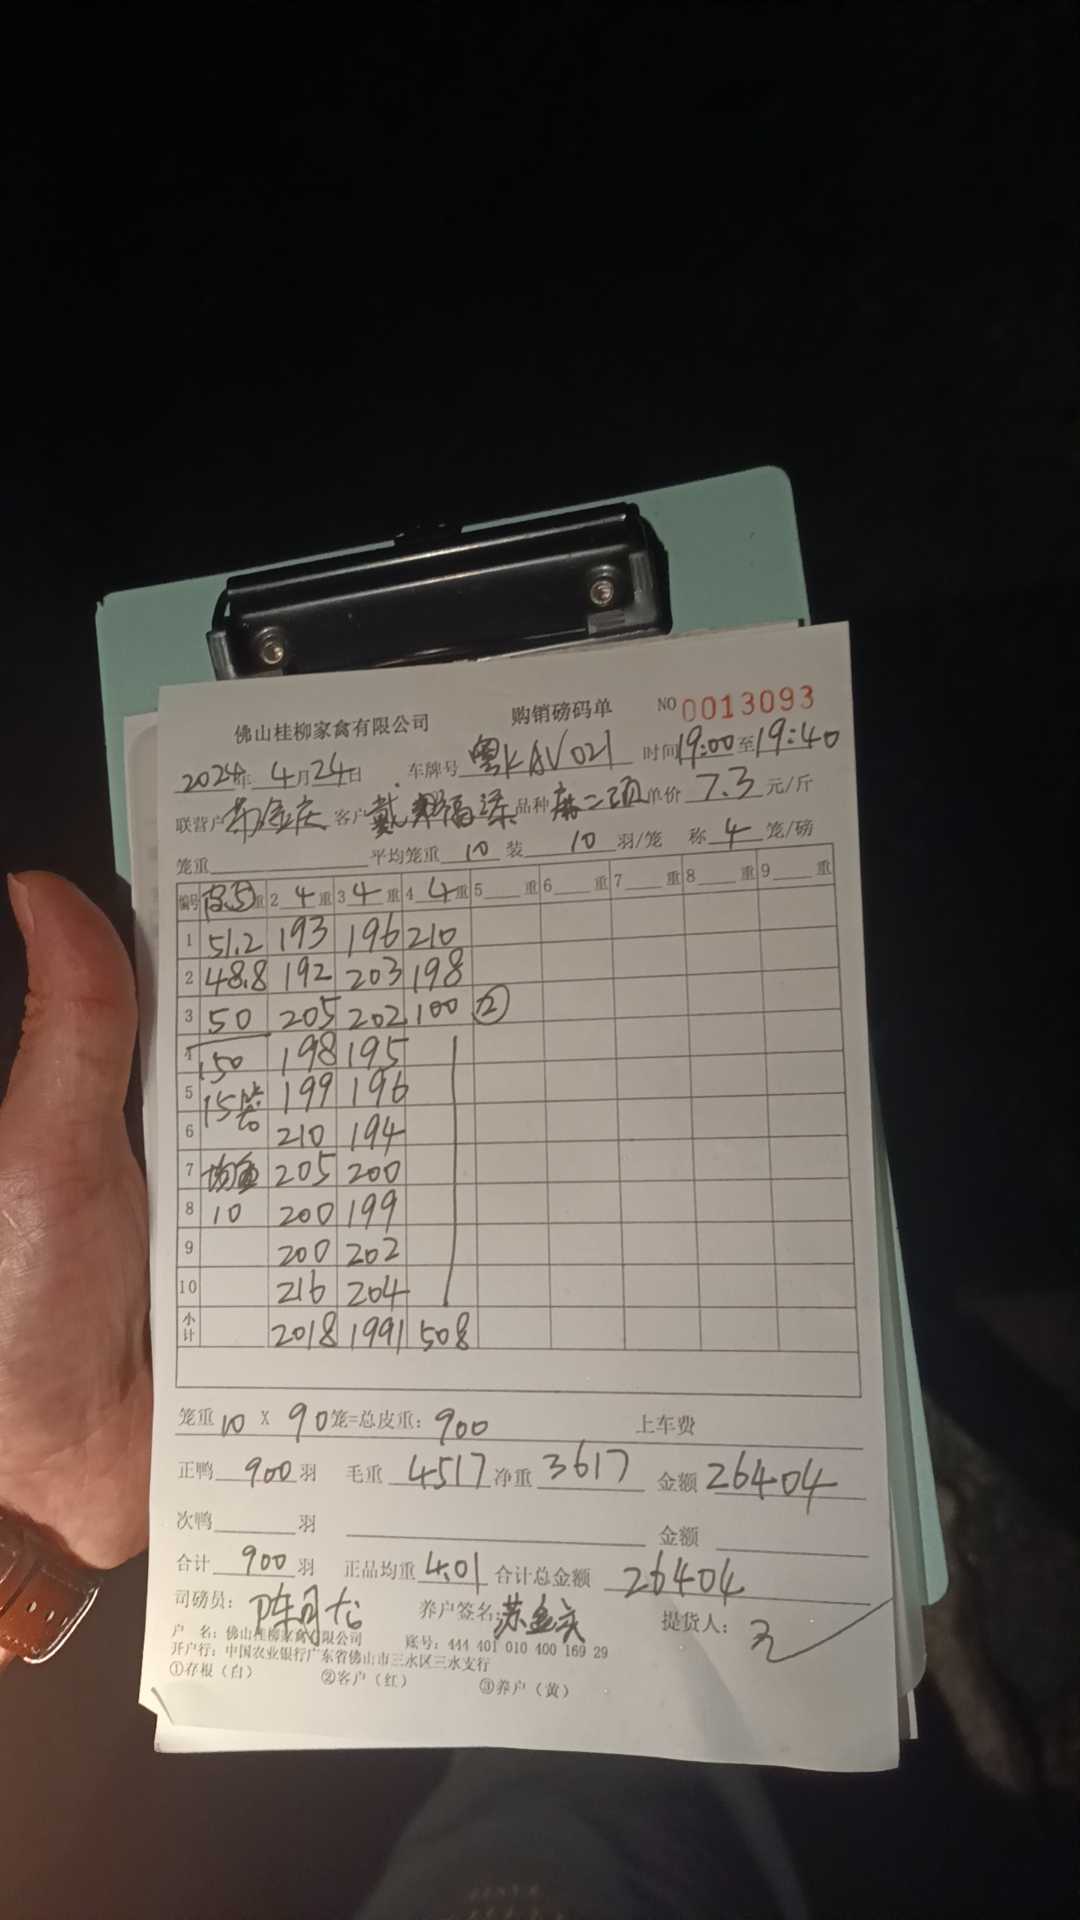 佛山桂柳家禽有限公司 购销磅码单 NO 0013093
2024年 4月24日 车牌号 粤KAV021 时间19:00至19:40
联营户 苏金庆 客户 戴 福 品种 麻二项 单价 7.3 元/斤
笼重 平均笼重 10 装 10 羽/笼 称 4 笼/磅
编号 重 2 4 重 3 4 重 4 4 重 5 重 6 重 7 重 8 重 9 重
1 51.2 193 196 210
2 48.8 192 203 198
3 50 205 202 100 ②
4 150 198 195
5 15笼 199 196
6 210 194
7 均重 205 200
8 10 200 199
9 200 202
10 216 204
小计 2018 1991 508
笼重 10 X 90笼=总皮重: 900 上车费
正鸭 900 羽 毛重 4517 净重 3617 金额 26404
次鸭 羽 金额
合计 900 羽 正品均重 4.01 合计总金额 26404
司磅员: 陈 养户签名: 苏金庆 提货人:
户 名: 佛山桂柳家禽有限公司 账号: 444 401 010 400 169 29
开户行: 中国农业银行广东省佛山市三水区三水支行
①存根（白） ②客户（红） ③养户（黄）